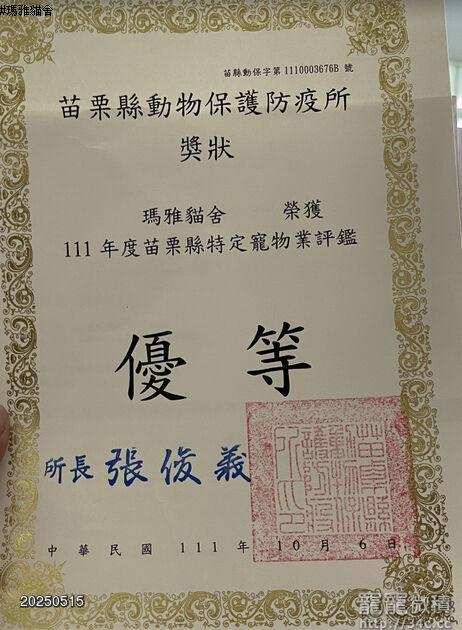 #瑪雅貓舍
苗縣動保字第1110003676B 號
苗栗縣動物保護防疫所
獎狀
瑪雅貓舍 榮獲
111 年度苗栗縣特定寵物業評鑑
優等
所長 張俊義
苗栗縣動物保護防疫所印
中華民國 111 年 10 月 6 日
20250515
龍龍微積
http://34c.cc